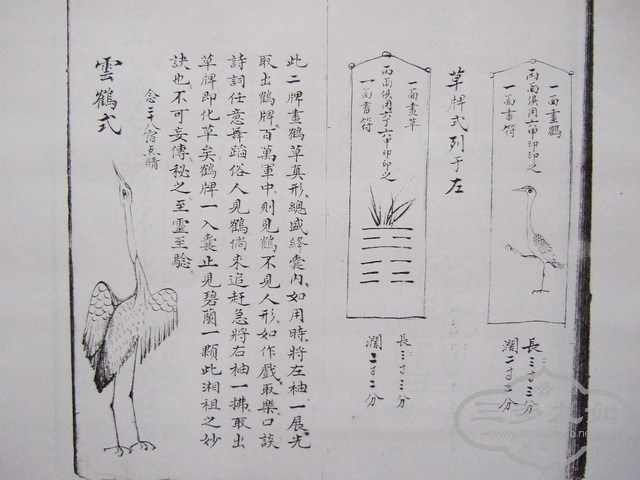 一面畫鶴
兩面俱用六甲印印之
一面書符
長三寸三分
濶二寸二分
草牌式列于左
一面畫草
兩面俱用六丁六甲印印之
一面書符
長三寸三分
濶二寸二分
此二牌畫鶴草真形總盛絳囊內如用時將左袖一展先
取出鶴牌百萬軍中則見鶴不見人形如作戲取樂口談
詩詞任意舞蹈俗人見鶴倘來追赶急將右袖一拂取出
草牌即化草矣鶴牌一入囊止見碧蘭一顆此湘祖之妙
訣也不可妄傳秘之至靈至驗
念二十八宿点睛
雲鶴式